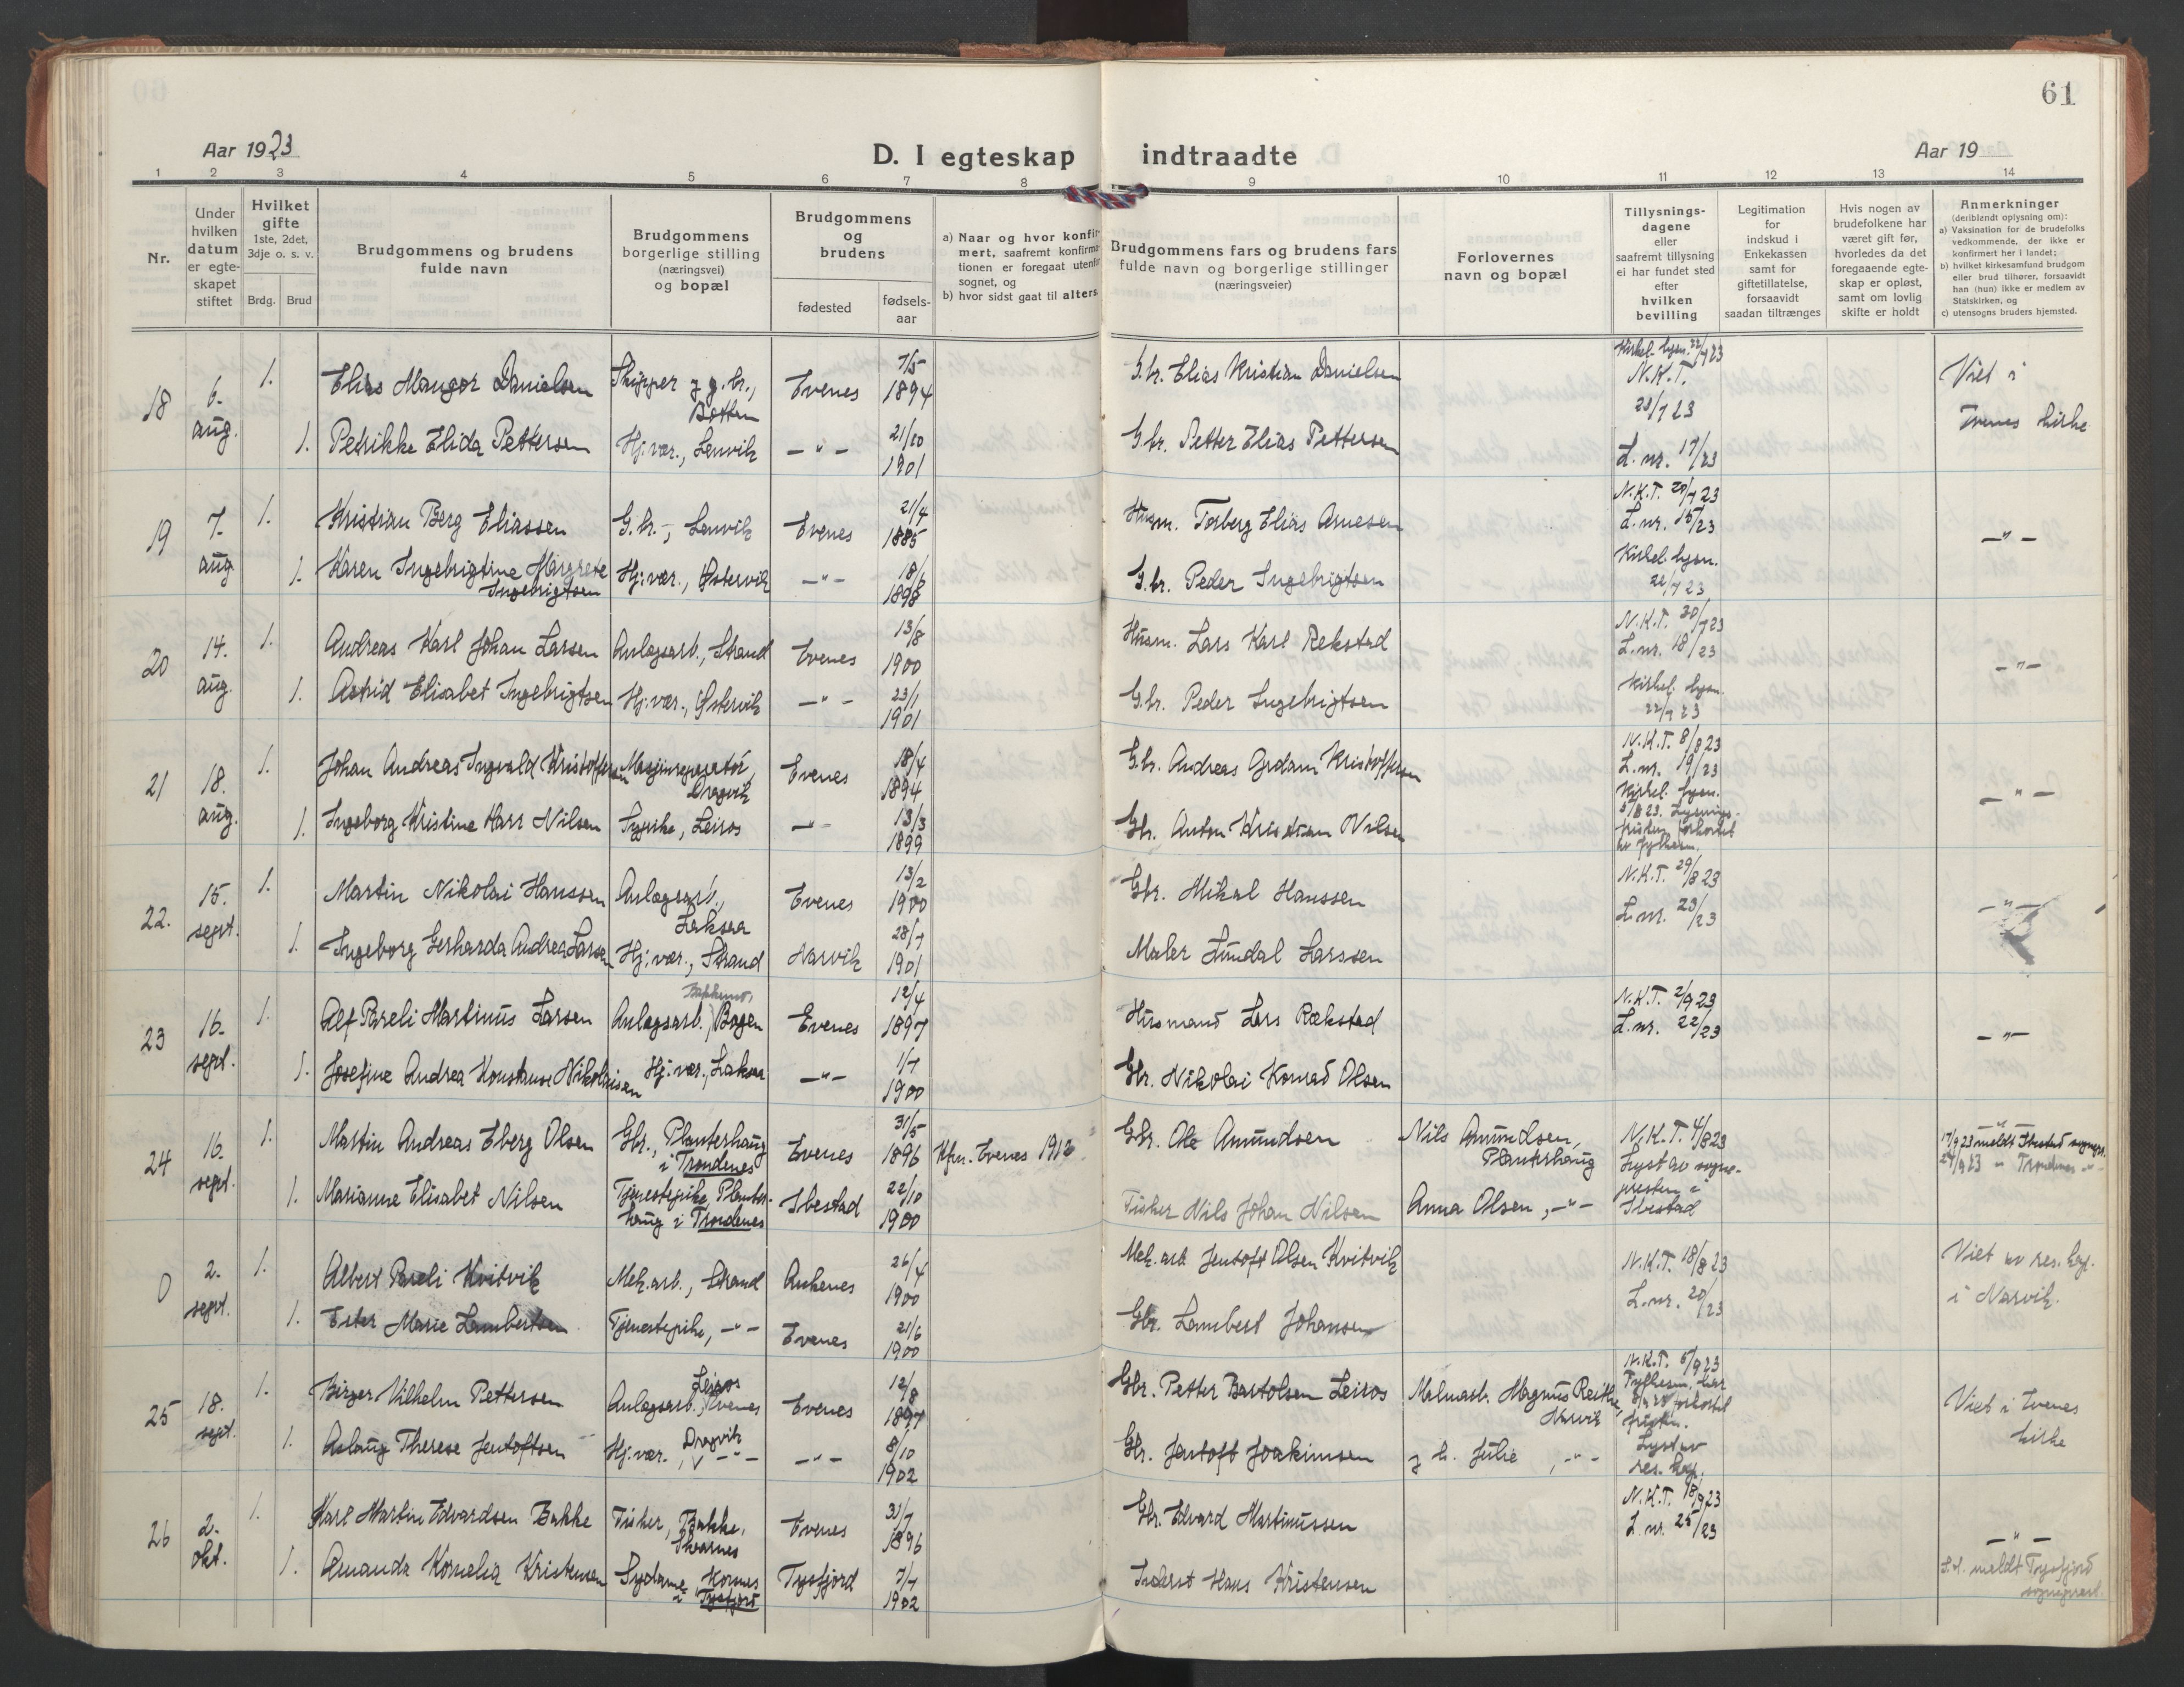 61
Aar 1923
D. I egteskap indtraadte
Aar 19
1 2 3 4 5 6 7 8 9 10 11 12 13 14
Nr.
Under
hvilken
datum
er egte-
skapet
stiftet
Hvilket
gifte
1ste, 2det,
3dje o. s. v.
Brdg. Brud
Brudgommens og brudens
fulde navn
Brudgommens
borgerlige stilling
(næringsvei)
og bopæl
Brudgommens
og
brudens
fødested
fødsels-
aar
a) Naar og hvor konfir-
mert, saafremt konfirma-
tionen er foregaat utenfor
sognet, og
b) hvor sidst gaat til alters.
Brudgommens fars og brudens fars
fulde navn og borgerlige stillinger
(næringsveier)
Forlovernes
navn og bopæl
Tillysnings-
dagene
eller
saafremt tillysning
ei har fundet sted
efter
hvilken
bevilling
Legitimation
for
indskud i
Enkekassen
samt for
giftetillatelse,
forsaavidt
saadan tiltrænges
Hvis nogen av
brudefolkene har
været gift før,
hvorledes da det
foregaaende egte-
skap er opløst,
samt om lovlig
skifte er holdt
Anmerkninger
(deriblandt oplysning om):
a) Vaksination for de brudefolks
vedkommende, der ikke er
konfirmert her i landet;
b) hvilket kirkesamfund brudgom
eller brud tilhører, forsaavidt
han (hun) ikke er medlem av
Statskirken, og
c) utensogns bruders hjemsted.
18 6. aug. 1. Elias Mangor Danielsen Skipper g g.br., Botten Evenes 7/5 1894 G.br. Elias Kristian Danielsen Kirkel. lysn. 22/7 23 N.K.T. 23/7 23 Viet i
1. Petrikke Elida Pettersen Hj.vær., Lenvik — " — 21/10 1901 G.br. Petter Elias Pettersen L. nr. 17/23 Evenes kirke
19 7. aug 1. Kristian Berg Eliassen G.br., Lenvik Evenes 21/4 1885 Husm. Torberg Elias Arnesen N.K.T. 20/7 23 L. nr. 15/23 — " —
1. Karen Ingebrigtine Margrete Ingebrigtsen Hj.vær., Østervik — " — 1898 G.br. Peder Ingebrigtsen Kirkel. lysn. 22/7 23
20 14. aug. 1. Andreas Karl Johan Larsen Anlagsarb., Strand Evenes 13/8 1900 Husm. Lars Karl Rekstad N.K.T. 20/7 23 L. nr. 18/23 — " —
1. Astrid Elisabet Ingebrigtsen Hj.vær., Østervik — " — 23/1 1901 G.br. Peder Ingebrigtsen Kirkel. lysn. 22/7 23
21 18. aug. 1. Johan Andreas Ingvald Kristoffersen Maskinreparatør, Dragvik Evenes 18/4 1894 G.br. Andreas Ordam Kristoffersen N.K.T. 8/8 23 L. nr. 19/23 — " —
1. Ingeborg Kristine Karr Nilsen Sypike, Leiros — " — 13/3 1899 Gbr. Anton Kristian Nilsen Kirkel. lysn. 5/8 23. Lysnings- fristen forkortet av fylkesm.
22. 15. sept. 1. Martin Nikolai Hanssen Anlagsarb., Laksaa Evenes 13/2 1900 Gbr. Mikal Hanssen N.K.T. 29/8 23 L. nr. 23/23 — " —
1. Ingeborg Gerharda Andrea Larsen Hj.vær., Strand Narvik 28/7 1901 Maler Lundal Larssen
23 16. sept. 1. Alf Pareli Martinus Larsen Anlagsarb., Bogen Evenes 12/4 1897 Husmand Lars Rekstad N.K.T. 2/9 23 L. nr. 22/23 — " —
1. Josefine Andrea Konstanse Nikolaisen Hj.vær., Laksaa — " — 1/7 1900 Gbr. Nikolai Konrad Olsen
24 16. sept. 1. Martin Andreas Eberg Olsen Gbr., Planterhaug i Trondenes Evenes 31/5 1896 Kfm. Evenes 1912 Gbr. Ole Amundsen Nils Amundsen, Planterhaug N.K.T. 4/8 23 Lyst av sogne- — " — 17/9 23 meldt Ibestad sognepr.
1. Marianne Elisabet Nilsen Tjenestepike Planter- haug i Trondenes Ibestad 22/10 1900 Fisker Nils Johan Nilsen Anna Olsen, — " — presten i Ibestad 24/9 23 " Trondenes — " —
0 2. sept. 1. Albert Pareli Kvitvik Mek.arb., Strand Ankenes 26/4 1900 Mek. arb Jentoft Olsen Kvitvik N.K.T. 18/8 23 Viet av res. kap.
1. Ester Marie Lambertsen Tjenestepike, — " — Evenes 21/6 1900 Gbr. Lambert Johansen L. nr. 20/23 i Narvik.
25 18. sept. 1. Birger Vilhelm Pettersen Anlagsarb., Leiros Evenes Evenes 12/8 1897 Gbr. Petter Bartolsen Leiros Malmarb. Magnus Reithe, Narvik N.K.T. 5/9 23 Fylkesm. har forkortet fristen. Viet i Evenes
1. Aslaug Therese Jentoftsen Hj.vær., Dragvik — " — — " — 8/10 1902 Gbr. Jentoft Joakimsen g h. Julie, — " — Lyst av res. kap. kirke
26 2. okt. 1. Karl Martin Edvardsen Bakke Fisker, Bakke, Skarnes Evenes 31/7 1896 Gbr. Edvard Martinussen N.K.T. 18/9 23 L. nr. 25/23 — " —
1. Amanda Kornelia Kristensen Sydame, Kornes i Tysfjord Tysfjord 7/7 1902 Inderst Hans Kristensen S.d. meldt Tysfjord sogneprest.